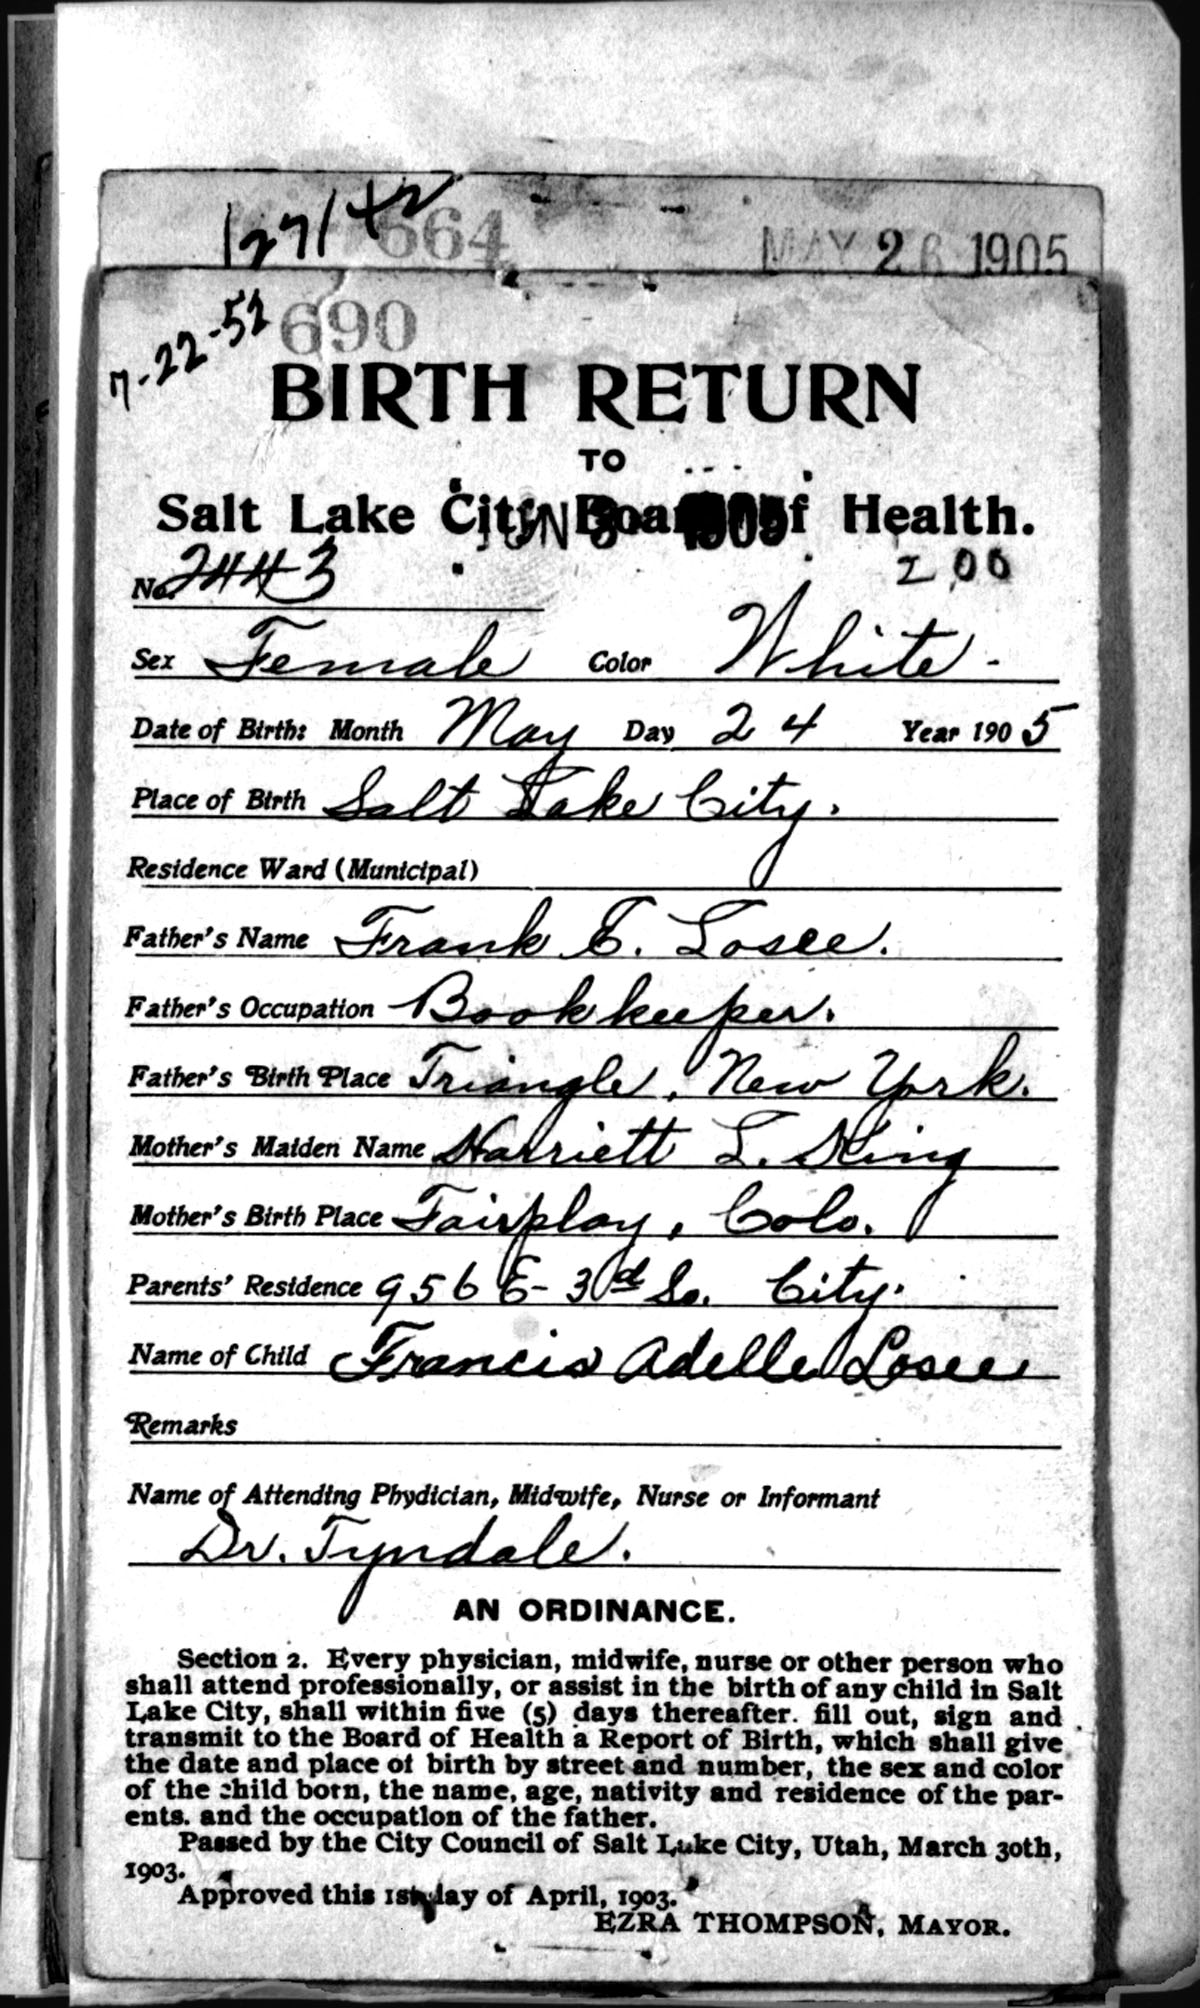 127142
664
MAY 26 1905
7-22-52
690
BIRTH RETURN
TO
Salt Lake City Board of Health.
JUN 1905
No. 2443
200
Sex Female Color White -
Date of Birth: Month May Day 24 Year 1905
Place of Birth Salt Lake City.
Residence Ward (Municipal)
Father's Name Frank E. Losee.
Father's Occupation Bookkeeper.
Father's Birth Place Triangle, New York.
Mother's Maiden Name Harriett L. King
Mother's Birth Place Fairplay, Colo.
Parents' Residence 956 E- 3rd So. City.
Name of Child Francis Adelle Losee
Remarks
Name of Attending Phydician, Midwife, Nurse or Informant
Dr. Tyndale.
AN ORDINANCE.
Section 2. Every physician, midwife, nurse or other person who
shall attend professionally, or assist in the birth of any child in Salt
Lake City, shall within five (5) days thereafter. fill out, sign and
transmit to the Board of Health a Report of Birth, which shall give
the date and place of birth by street and number, the sex and color
of the child born, the name, age, nativity and residence of the par-
ents. and the occupation of the father.
Passed by the City Council of Salt Lake City, Utah, March 30th,
1903.
Approved this 1st day of April, 1903.
EZRA THOMPSON, MAYOR.